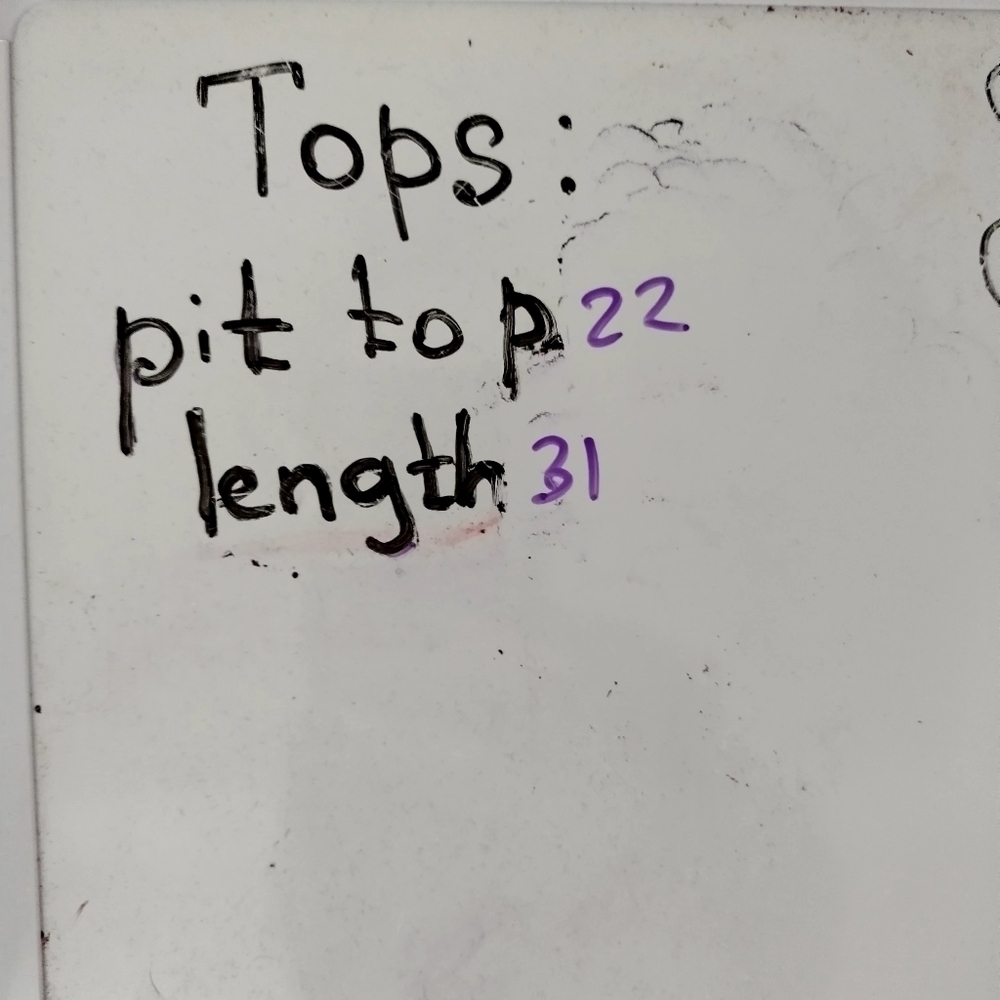 Tops:
pit to p 22
length 31